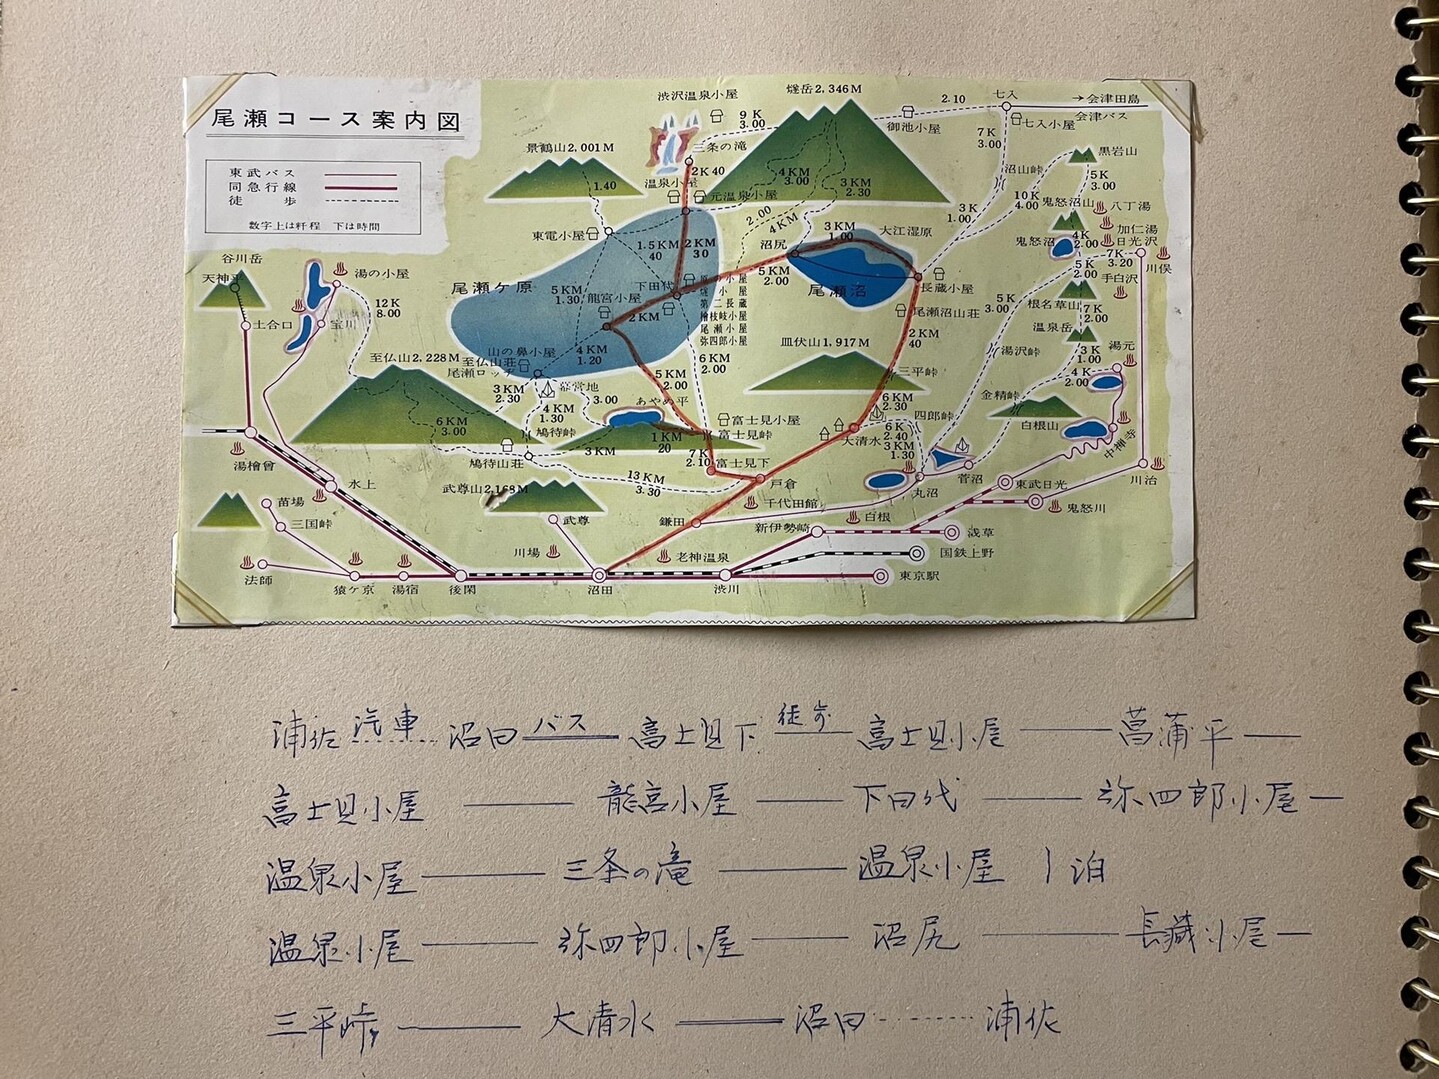 尾瀬コース案内図
東武バス
同急行線
徒歩
数字上は粁程 下は時間
渋沢温泉小屋
燧岳2,346M
9K
3.00
2.10
七入
→会津田島
会津バス
御池小屋
七入小屋
三条の滝
景鶴山2,001M
1.40
2K40
温泉小屋
元温泉小屋
4KM
3.00
3KM
2.30
7K
3.00
沼山峠
黒岩山
5K
3.00
10K
4.00
鬼怒沼山
八丁湯
加仁湯
日光沢
鬼怒沼
4K
2.00
7K
3.20
川俣
手白沢
5K
2.00
根名草山
7K
2.00
温泉岳
3K
1.00
湯元
4K
2.00
3K
1.00
2.00
4KM
3KM
1.00
大江湿原
沼尻
東電小屋
1.5KM
40
2KM
30
5KM
2.00
尾瀬沼
長蔵小屋
尾瀬沼山荘
尾瀬ケ原
5KM
1.30
下田代
龍宮小屋
2KM
原の小屋
燧小屋
第二長蔵
檜枝岐小屋
尾瀬小屋
弥四郎小屋
谷川岳
天神平
湯の小屋
土合口
宝川
12K
8.00
至仏山2,228M
山の鼻小屋
至仏山荘
尾瀬ロッヂ
4KM
1.20
6KM
2.00
皿伏山1,917M
2KM
40
5K
3.00
湯沢峠
三平峠
幕営地
3KM
2.30
3.00
5KM
2.00
あやめ平
4KM
1.30
6KM
3.00
鳩待峠
1KM
20
富士見小屋
富士見峠
6KM
2.30
四郎峠
金精峠
白根山
大清水
6K
2.40
3KM
1.30
鳩待山荘
3KM
7K
2.10
富士見下
13KM
3.30
戸倉
丸沼
菅沼
中禅寺
湯檜曾
水上
武尊山2,158M
東武日光
川治
苗場
三国峠
武尊
鎌田
千代田館
白根
鬼怒川
新伊勢崎
浅草
川場
老神温泉
国鉄上野
法師
猿ケ京
湯宿
後閑
沼田
渋川
東京駅
浦佐 汽車 沼田 バス 富士見下 徒歩 富士見小屋 — 菖蒲平 —
富士見小屋 — 龍宮小屋 — 下田代 — 弥四郎小屋 —
温泉小屋 — 三条の滝 — 温泉小屋 1泊
温泉小屋 — 弥四郎小屋 — 沼尻 — 長蔵小屋 —
三平峠 — 大清水 ＝ 沼田 ……… 浦佐